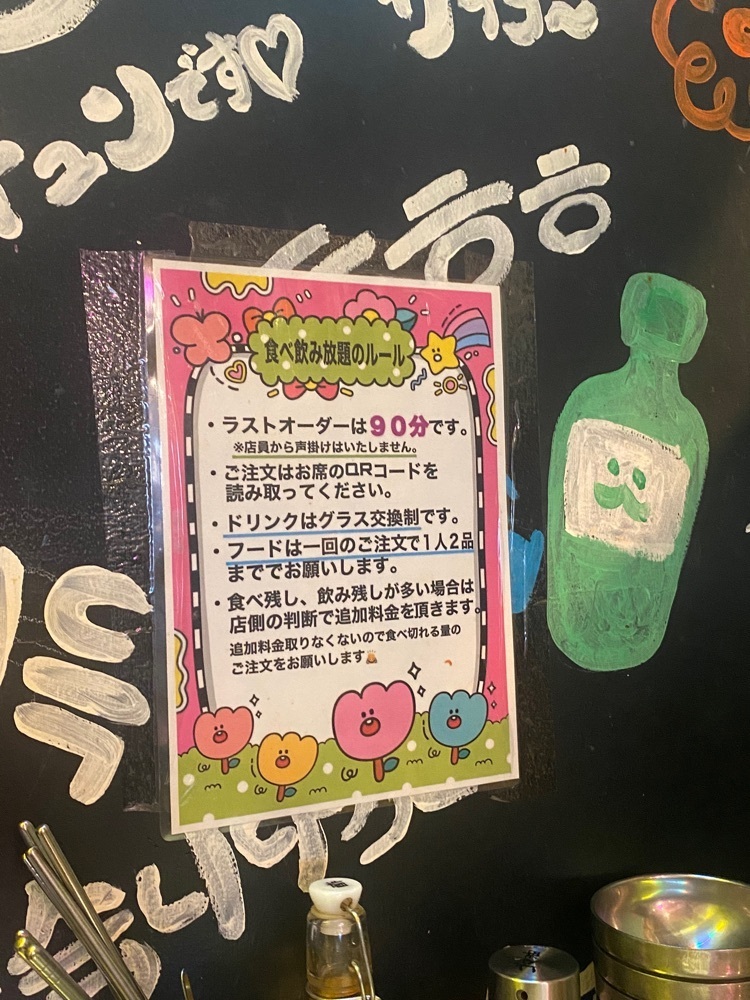 ュンです♡
ㅎㅎ
食べ飲み放題のルール
・ラストオーダーは９０分です。
※店員から声掛けはいたしません。
・ご注文はお席のQRコードを
読み取ってください。
・ドリンクはグラス交換制です。
・フードは一回のご注文で1人2品
まででお願いします。
・食べ残し、飲み残しが多い場合は
店側の判断で追加料金を頂きます。
追加料金取りなくないので食べ切れる量の
ご注文をお願いします🙇